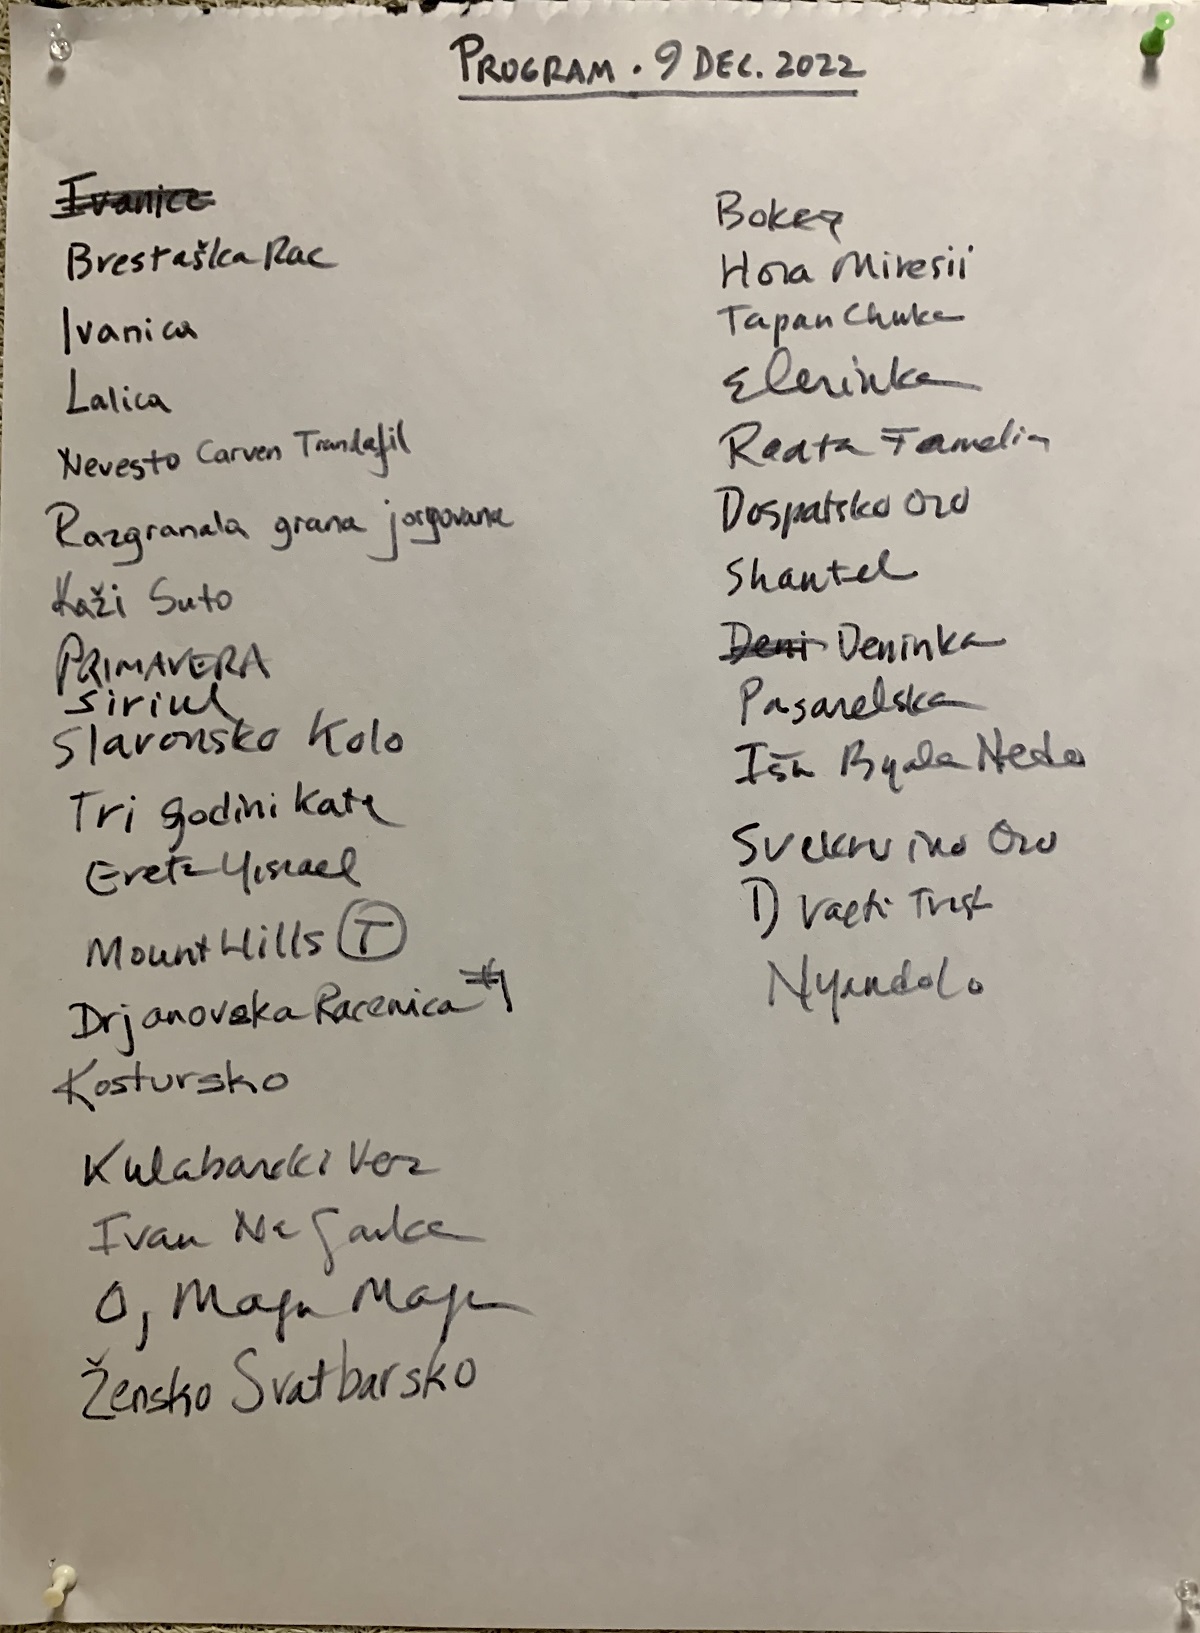 PROGRAM · 9 DEC. 2022
Ivanica
Brestaška Rac
Ivanica
Lalica
Nevesto Carven Trandafil
Razgranala grana jorgovana
Kaži Suto
PRIMAVERA
Siriul
Slavonsko Kolo
Tri godini Kata
Eretz Yisrael
Mount Hills T
Drjanovska Racenica #1
Kostursko
Kulabarski Vez
Ivan Na
O, Maya Maya
Žensko Svatbarsko
Hora Miresii
Tapan Chuka
Elerinka
Raata
Dospatsko Oro
Shantel
Deni Deninka
Pasarelska
Išu Byala Nedo
Svekrvino Oro
Dvaeti Trst
Nyandolo